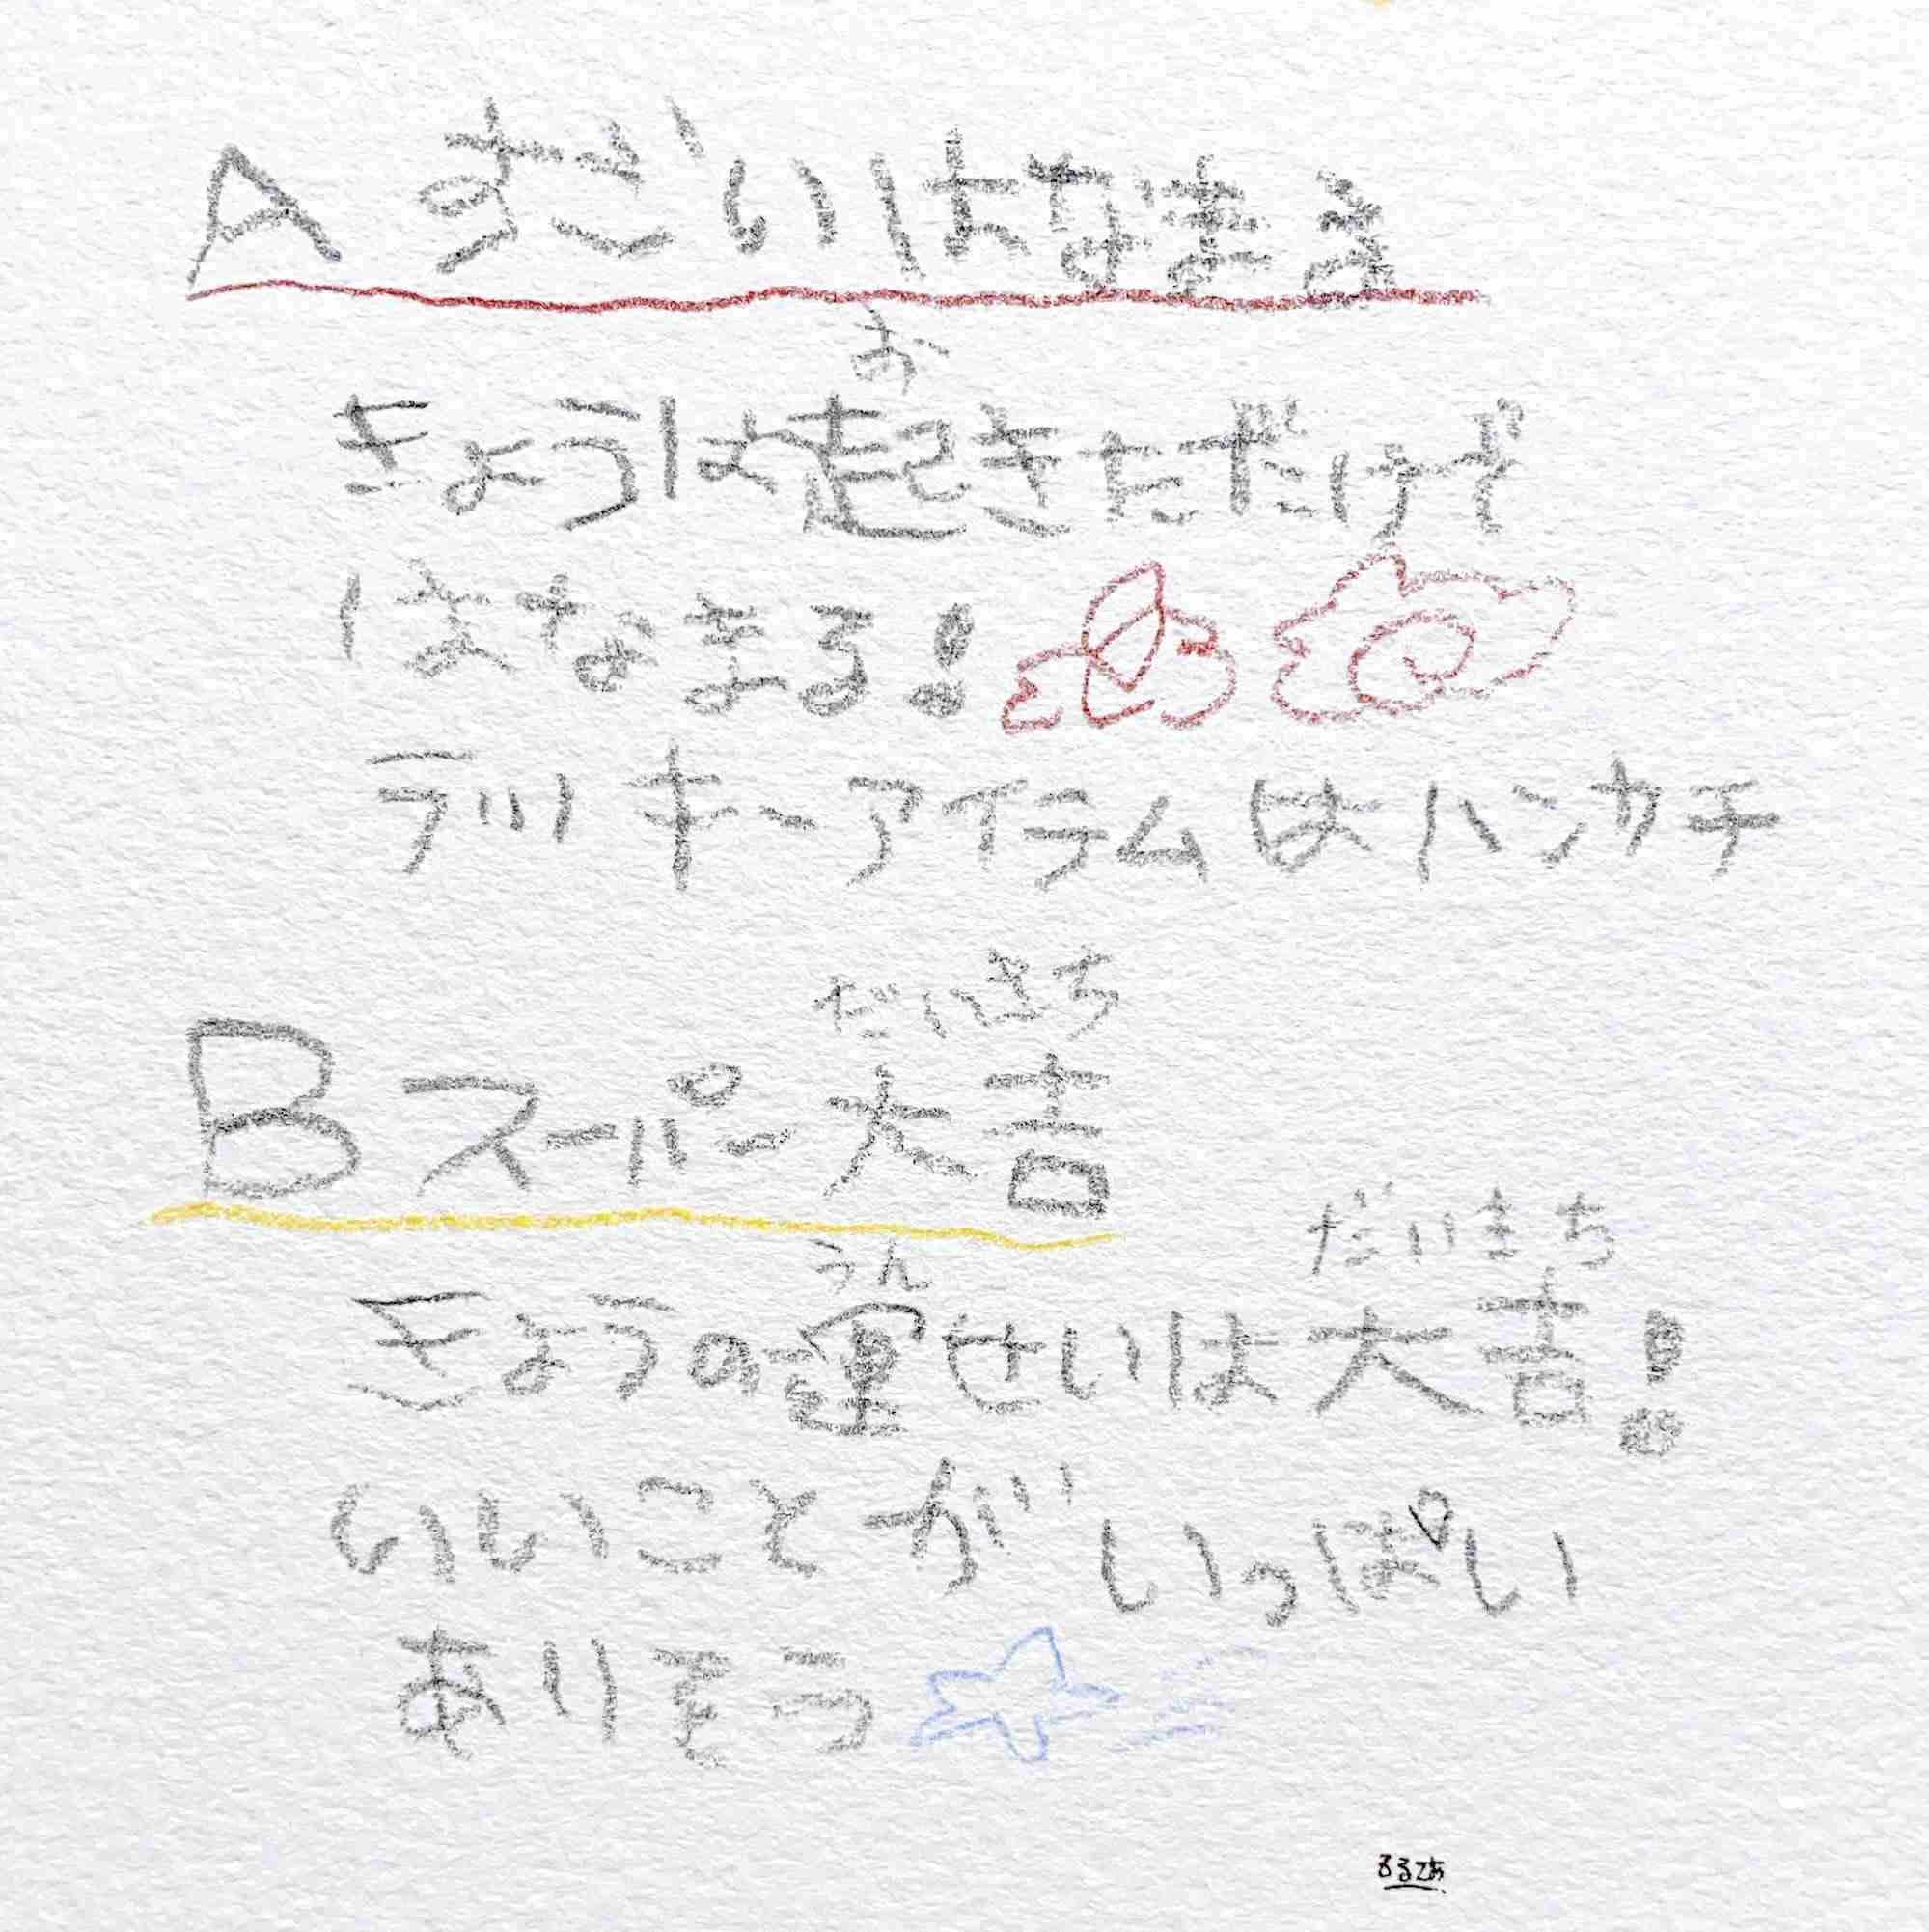 A すごいはなまる
お
きょうは起きただけで
はなまる!
ラッキーアイテムはハンカチ
だいきち
B スーパー大吉
うん だいきち
きょうの運せいは大吉!
いいことがいっぱい
ありそう